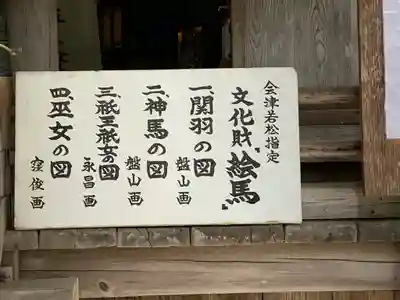 会津若松指定
文化財〝絵馬〟
一、関羽の図
盤山画
二、神馬の図
盤山画
三、祇王祇女の図
永昌画
四、巫女の図
窪俊画